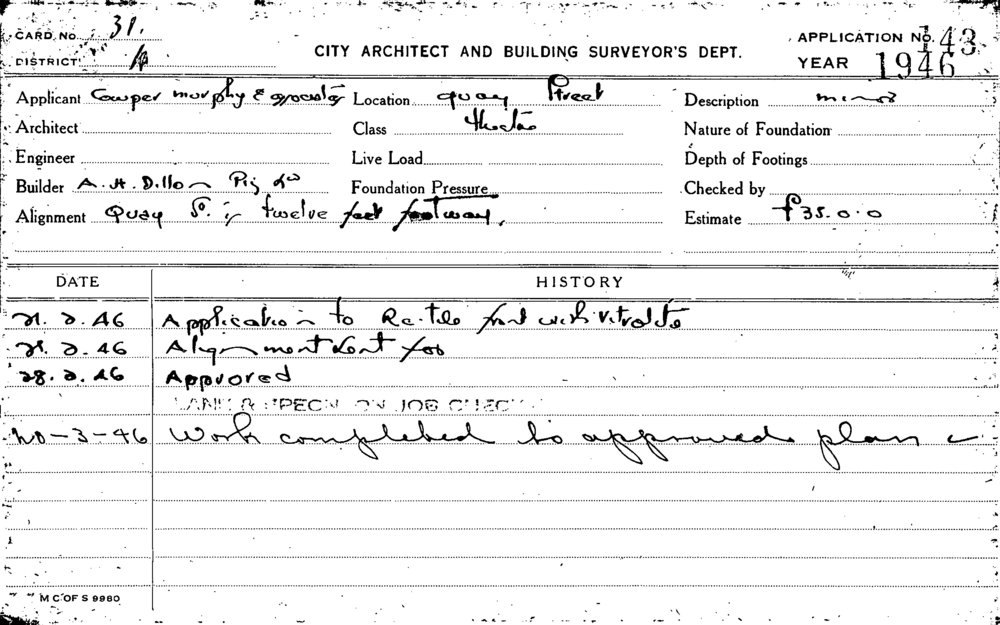 CARD No. 31.
DISTRICT A
CITY ARCHITECT AND BUILDING SURVEYOR'S DEPT.
APPLICATION No. 143
YEAR 1946
Applicant Cowper Murphy & Associates Location Quay Street Description minor
Architect Class theatre Nature of Foundation
Engineer Live Load Depth of Footings
Builder A. H. Dillon Foundation Pressure Checked by
Alignment Quay St. twelve feet footway. Estimate £35.0.0
DATE HISTORY
21. 2. 46 Application to Re-tile front with vitrolite
21. 2. 46 Alignment for
28. 2. 46 Approved
ON JOB CHECK
20-3-46 Work completed to approved plan
M C OF S 9980